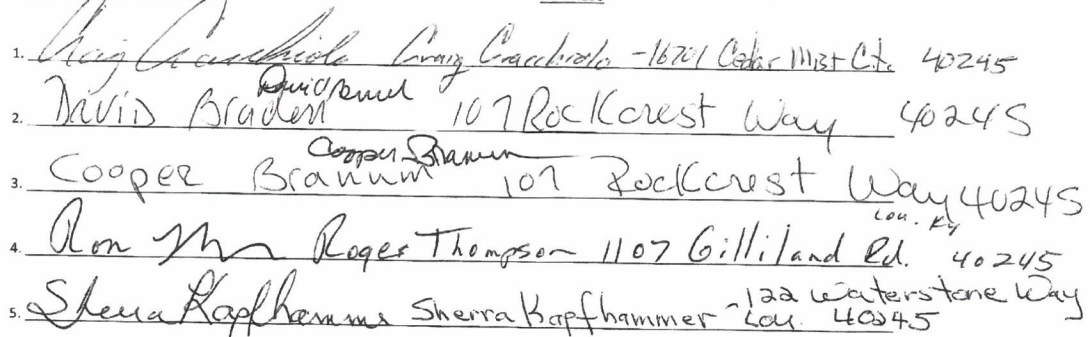 1. Craig Cracchiolo Craig Cracchiolo - 16701 Cedar Mist Cit. 40245
2. David Braden 107 Rockcrest Way 40245
Cooper Branum
3. Cooper Branum 107 Rockcrest Way 40245
Lou. Ky
4. Ron Roger Thompson 1107 Gilliland Rd. 40245
5. Sherra Kapfhammer Sherra Kapfhammer - 122 Waterstone Way
Lou. 40245